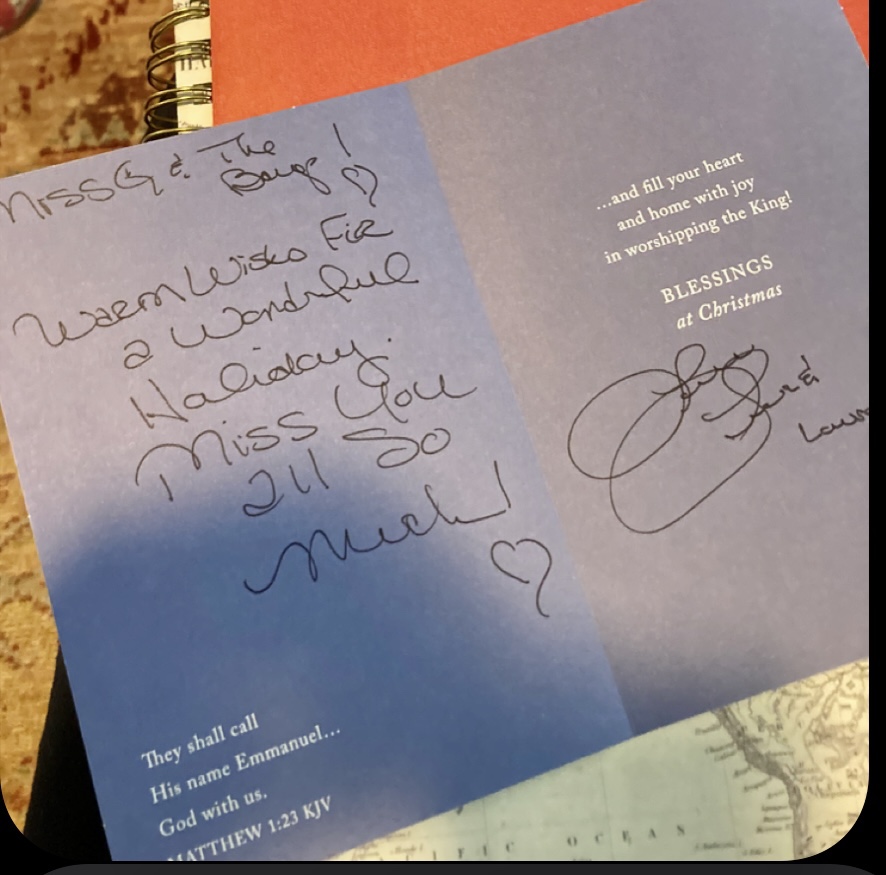 Miss G & The
Boys!
Warm Wishes For
a Wonderful
Holiday.
Miss You
all So
Much!
They shall call
His name Emmanuel...
God with us.
MATTHEW 1:23 KJV
...and fill your heart
and home with joy
in worshipping the King!
BLESSINGS
at Christmas
&
Laura
OCEAS